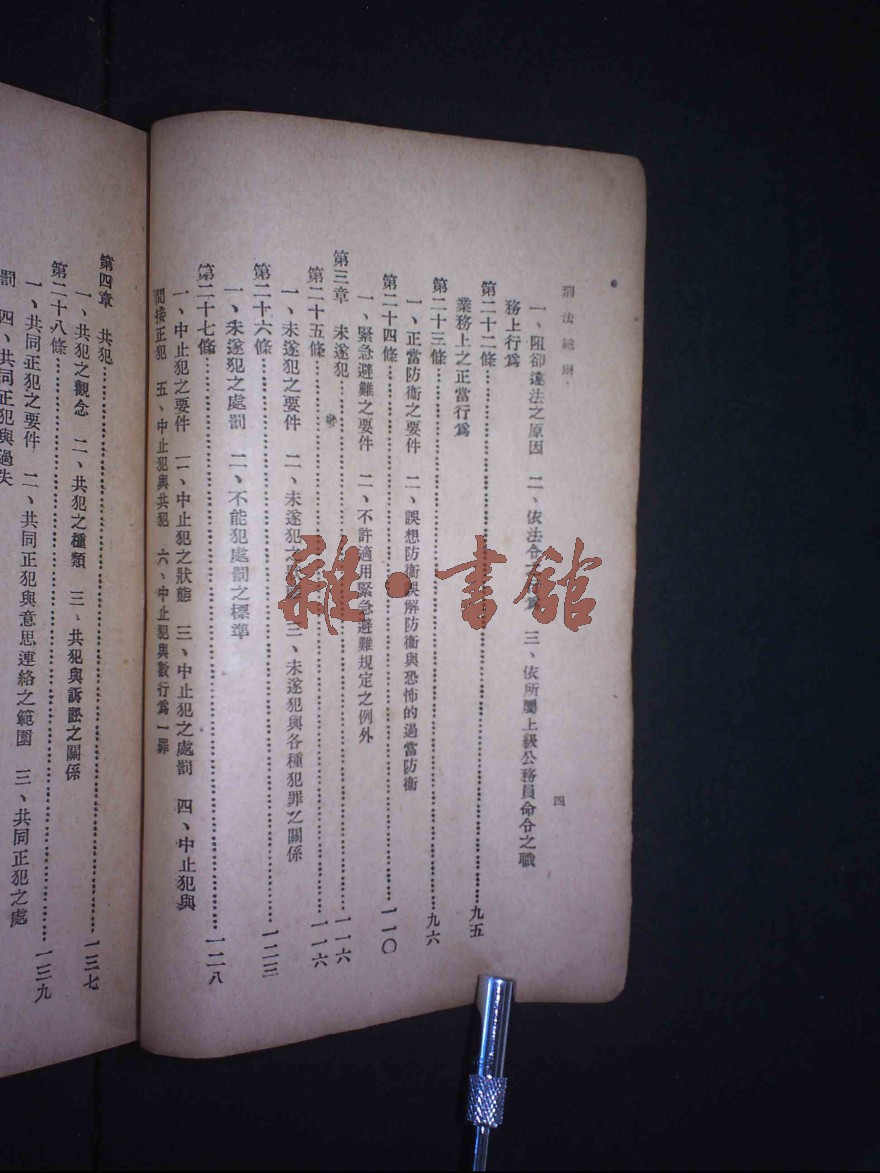 刑法總則
四
一、阻卻違法之原因 二、依法令之行爲 三、依所屬上級公務員命令之職
務上行爲
第二十二條……九五
業務上之正當行爲
第二十三條……九六
一、正當防衛之要件 二、誤想防衛誤解防衛與恐怖的過當防衛
第二十四條……一一〇
一、緊急避難之要件 二、不許適用緊急避難規定之例外
第三章 未遂犯……一一六
第二十五條……一一六
一、未遂犯之要件 二、未遂犯之 三、未遂犯與各種犯罪之關係
第二十六條……一二三
一、未遂犯之處罰 二、不能犯處罰之標準
第二十七條……一二八
一、中止犯之要件 二、中止犯之狀態 三、中止犯之處罰 四、中止犯與
間接正犯 五、中止犯與共犯 六、中止犯與數行爲一罪
第四章 共犯……一三七
一、共犯之觀念 二、共犯之種類 三、共犯與訴訟之關係
第二十八條……一三九
一、共同正犯之要件 二、共同正犯與意思連絡之範圍 三、共同正犯之處
罰 四、共同正犯與過失
雜·書館